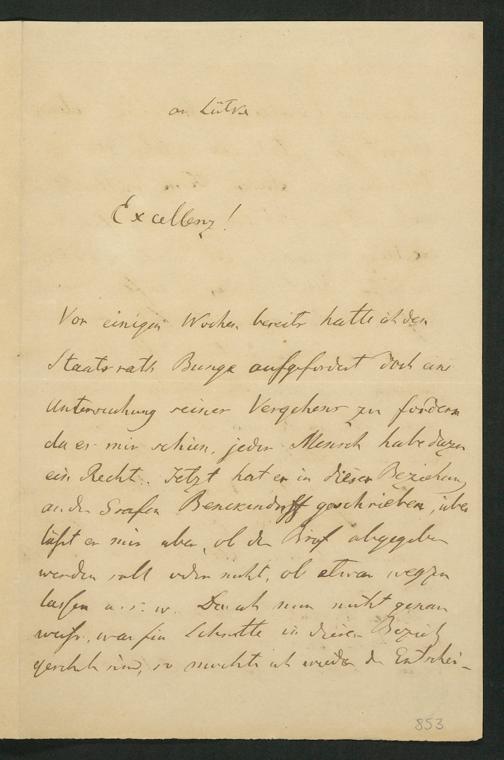 an Lütke
Excellenz!
Vor einigen Wochen bereits hatte ich den
Staatsrath Bunge aufgefordert doch eine
Untersuchung seiner Vergehens zu fordern
da er mir schien, jeder Mensch habe dazu
ein Recht. Jetzt hat er in dieser Beziehung
an den Grafen Benckendorff geschrieben, über
läßt er mir aber, ob der Brief abgegeben
werden soll oder nicht, ob etwas wegzu
lassen u. s. w. Da ich nun nicht genau
weiß, was für Schritte in dieser Bezieh
geschehn sind, so möchte ich wieder die Entschei-
853